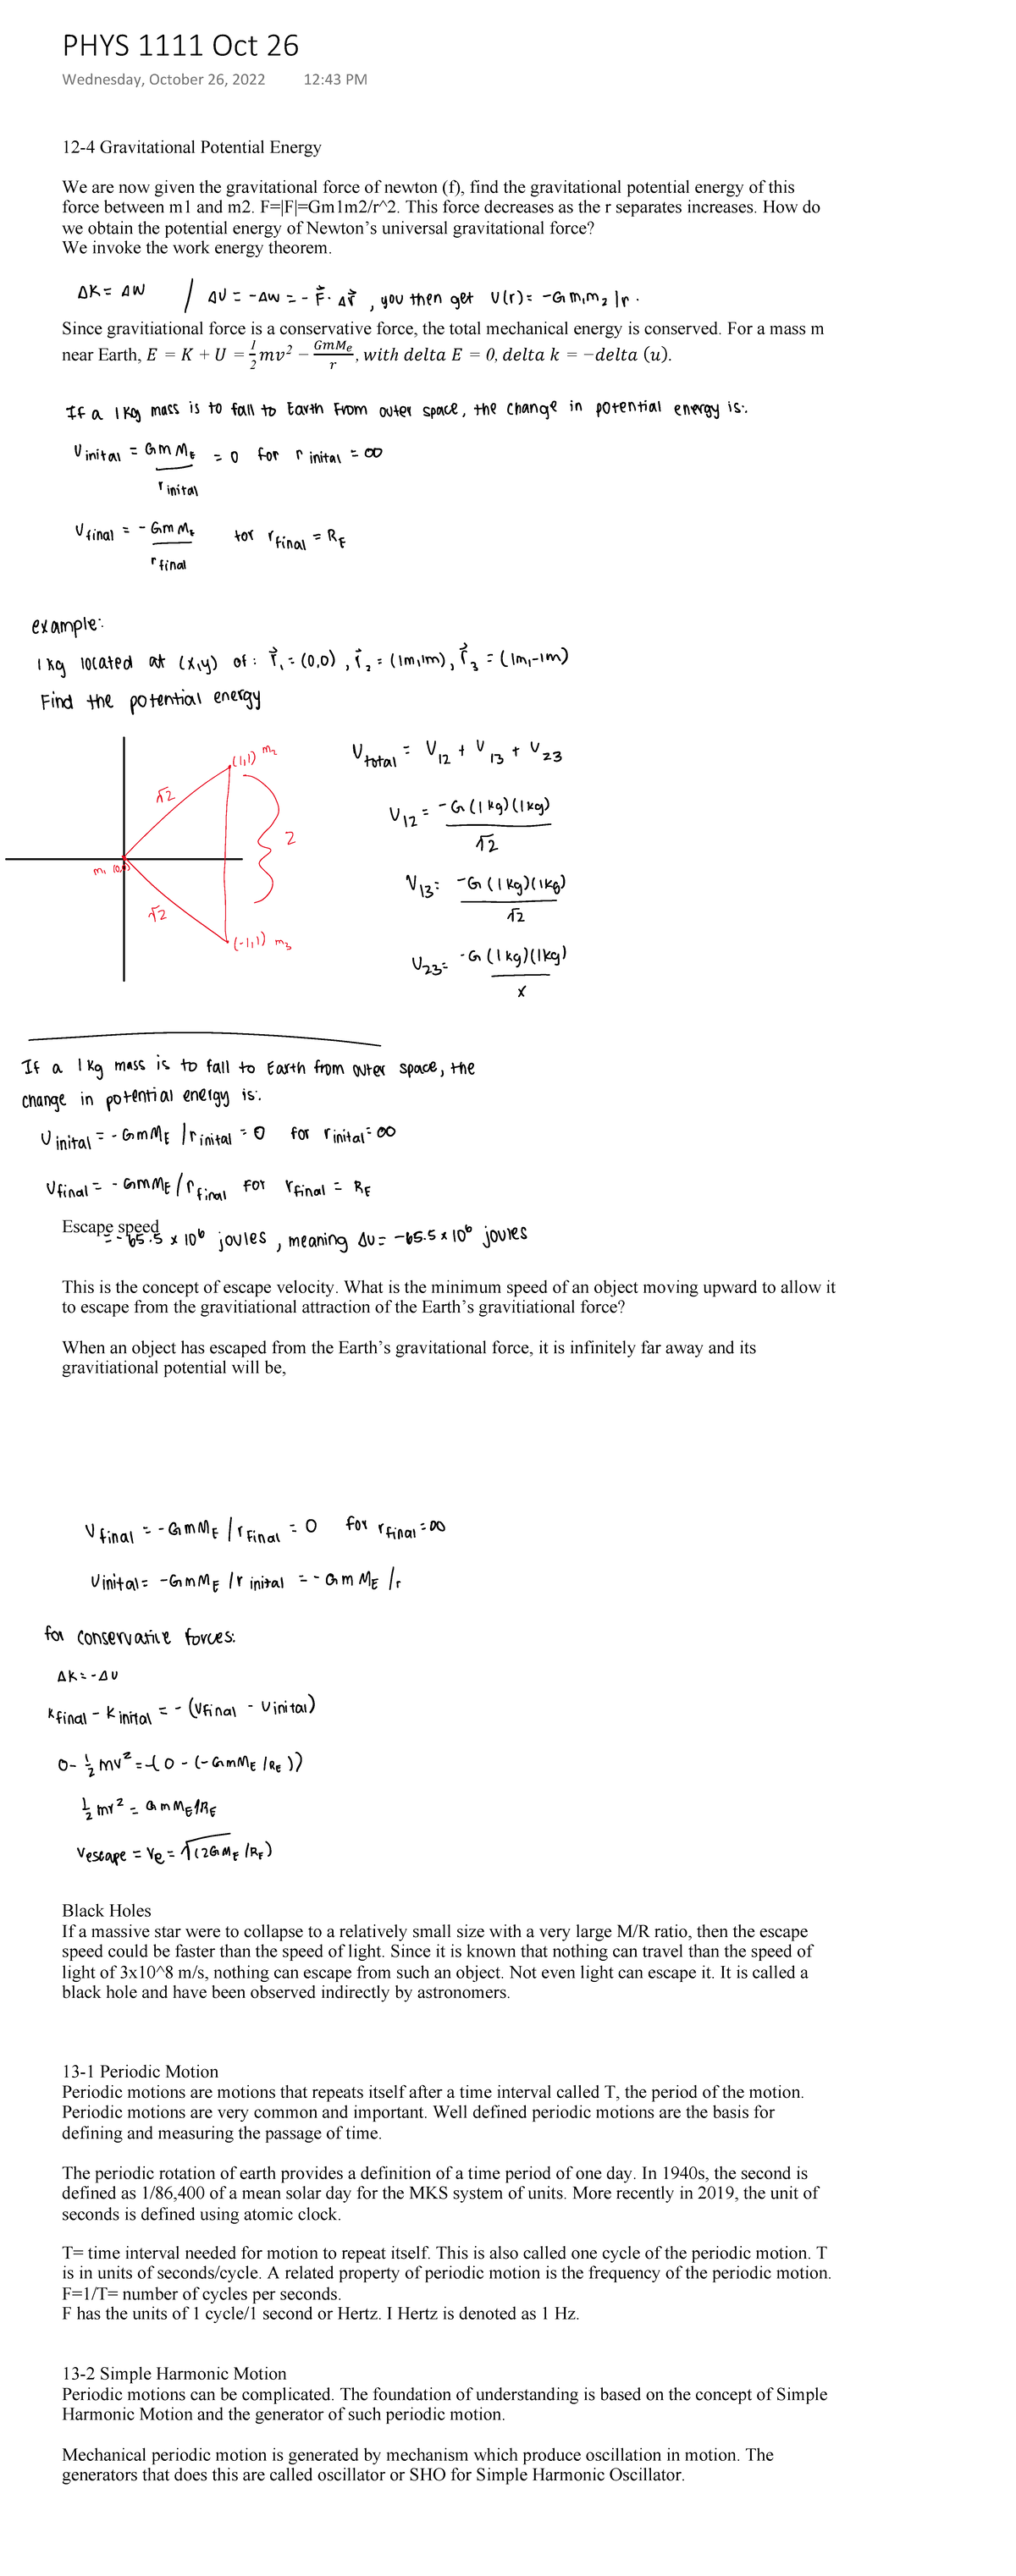 PHYS 1111 Oct 26
Wednesday, October 26, 2022 12:43 PM
12-4 Gravitational Potential Energy
We are now given the gravitational force of newton (f), find the gravitational potential energy of this
force between m1 and m2. F=|F|=Gm1m2/r^2. This force decreases as the r separates increases. How do
we obtain the potential energy of Newton's universal gravitational force?
We invoke the work energy theorem.
ΔK = ΔW / ΔU = -ΔW = - F⃗ · Δr⃗ , you then get U(r) = -G m₁m₂ /r .
Since gravitiational force is a conservative force, the total mechanical energy is conserved. For a mass m
near Earth, E = K + U = 1/2 mv² − GmMe/r, with delta E = 0, delta k = −delta (u).
If a 1 kg mass is to fall to Earth from outer space, the change in potential energy is:
U inital = GmM_E / r inital = 0 for r inital = ∞
U final = - GmM_E / r final for r final = R_E
example:
1 kg located at (x,y) of: r⃗₁ = (0,0) , r⃗₂ = (1m,1m), r⃗₃ = (1m,-1m)
Find the potential energy
(1,1) m₂
√2
2
m₁ (0,0)
√2
(-1,1) m₃
U total = U₁₂ + U₁₃ + U₂₃
U₁₂ = -G (1 kg)(1kg) / √2
U₁₃ = -G (1 kg)(1kg) / √2
U₂₃ = -G (1 kg)(1kg) / x
If a 1 kg mass is to fall to Earth from outer space, the
change in potential energy is:
U inital = - GmM_E / r inital = 0 for r inital = ∞
U final = - GmM_E / r final for r final = R_E
Escape speed
= -65.5 x 10⁶ joules , meaning ΔU = -65.5 x 10⁶ joules
This is the concept of escape velocity. What is the minimum speed of an object moving upward to allow it
to escape from the gravitiational attraction of the Earth's gravitiational force?
When an object has escaped from the Earth's gravitational force, it is infinitely far away and its
gravitiational potential will be,
U final = - GmM_E / r final = 0 for r final = ∞
U inital = -GmM_E / r inital = - G m M_E / r
for conservative forces:
ΔK = -ΔU
K final - K inital = - (U final - U inital)
0 - 1/2 mv² = -( 0 - (-GmM_E / R_E ))
1/2 mv² = GmM_E/R_E
V escape = Ve = √(2GM_E / R_E)
Black Holes
If a massive star were to collapse to a relatively small size with a very large M/R ratio, then the escape
speed could be faster than the speed of light. Since it is known that nothing can travel than the speed of
light of 3x10^8 m/s, nothing can escape from such an object. Not even light can escape it. It is called a
black hole and have been observed indirectly by astronomers.
13-1 Periodic Motion
Periodic motions are motions that repeats itself after a time interval called T, the period of the motion.
Periodic motions are very common and important. Well defined periodic motions are the basis for
defining and measuring the passage of time.
The periodic rotation of earth provides a definition of a time period of one day. In 1940s, the second is
defined as 1/86,400 of a mean solar day for the MKS system of units. More recently in 2019, the unit of
seconds is defined using atomic clock.
T= time interval needed for motion to repeat itself. This is also called one cycle of the periodic motion. T
is in units of seconds/cycle. A related property of periodic motion is the frequency of the periodic motion.
F=1/T= number of cycles per seconds.
F has the units of 1 cycle/1 second or Hertz. I Hertz is denoted as 1 Hz.
13-2 Simple Harmonic Motion
Periodic motions can be complicated. The foundation of understanding is based on the concept of Simple
Harmonic Motion and the generator of such periodic motion.
Mechanical periodic motion is generated by mechanism which produce oscillation in motion. The
generators that does this are called oscillator or SHO for Simple Harmonic Oscillator.